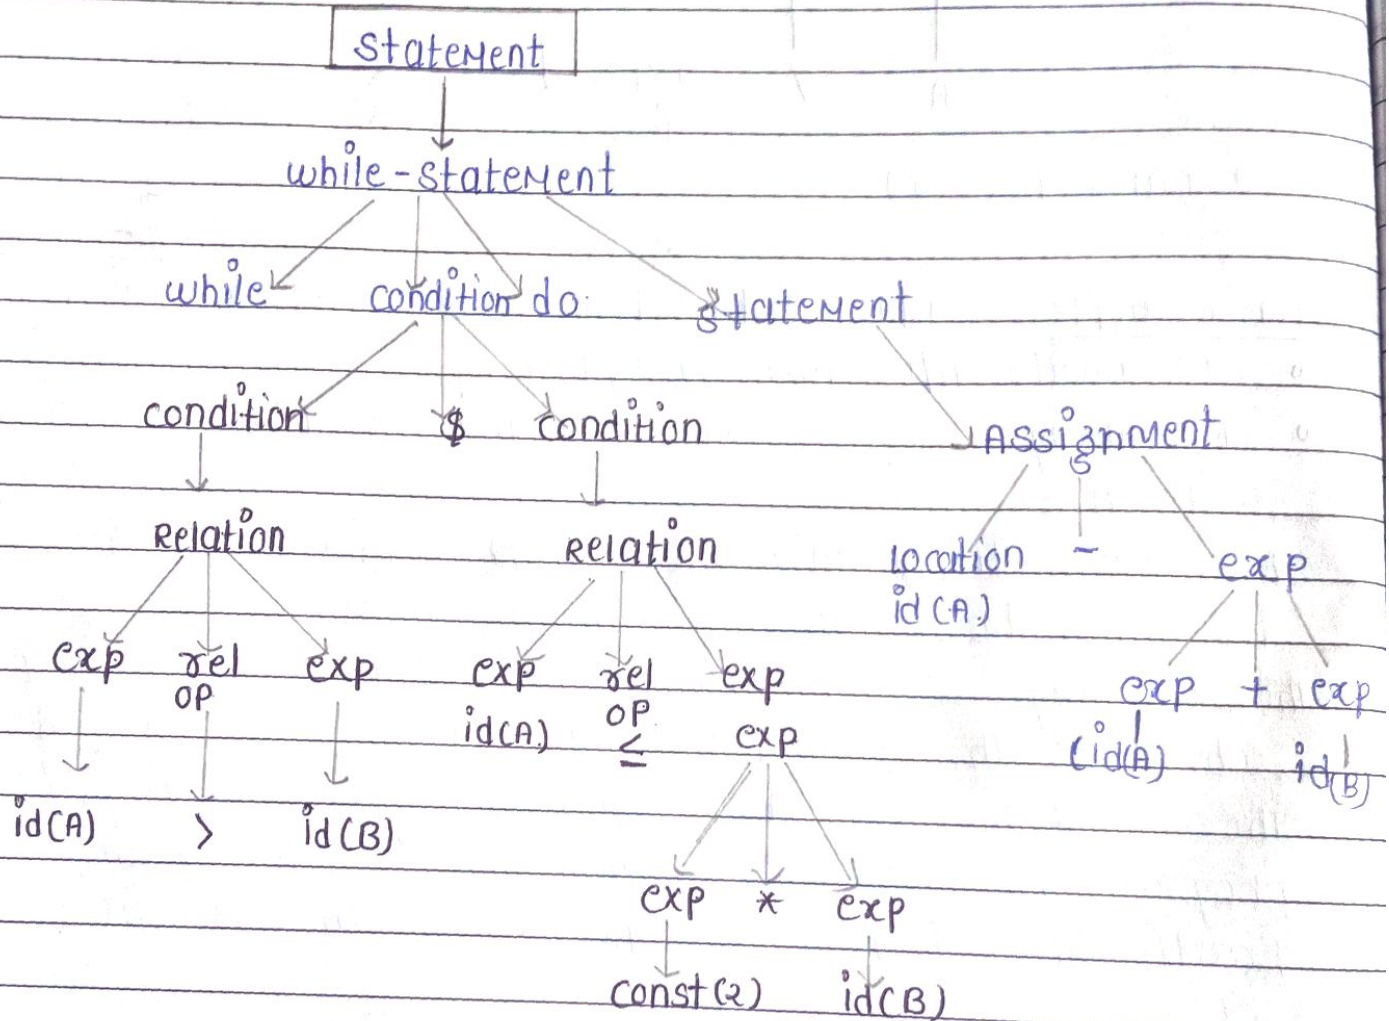 Statement
while-statement
while condition do statement
condition $ condition Assignment
Relation Relation location - exp
id(A)
exp rel exp exp rel exp exp + exp
op id(A) op exp (id(A) id(B)
≤
id(A) > id(B)
exp * exp
const(2) id(B)